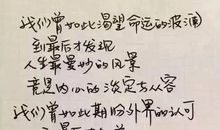 我们曾如此渴望命运的波澜
到最后才发现
人生最曼妙的风景
竟是内心的淡定与从容
我们曾如此期盼外界的认可